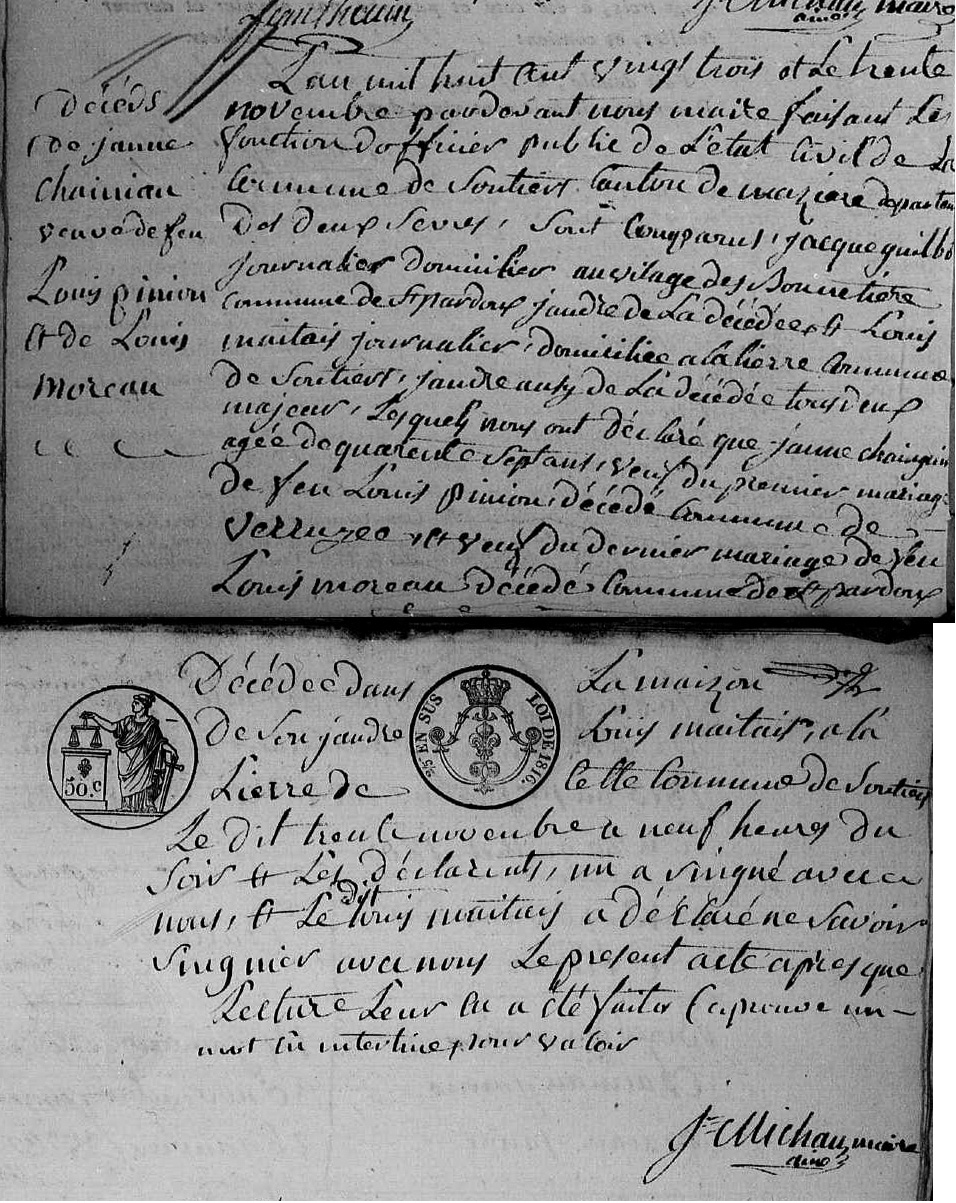 J Michau maire
ainé
Décés
de janne
chainiau
veuve de feu
Louis pinion
et de Louis
moreau
L'an mil huit cent vingt trois et Le trente
novembre pardevant nous maire faisant Les
fonction d'officier public de L'état Civil de La
Commune de Soutiers Canton de maziere departem
Des deux Sevres, Sont Comparus, jacque guilbo
journalier domicilier au vilage des Bonnetiere
commune de St pardoux jandre de La décédée, et Louis
maitais journalier, domiciliée a la lierre Commune
de Soutiers, jandre ausy de La décédée tous deux
majeur, Lesquels nous ont déclaré que janne
agée de quarente Sept ans, veuf du premier mariage
de feu Louis pinion, décédé Commune de
Verruyee, et veuf du dernier mariage de feu
Louis moreau Décédé Commune de St pardoux
Décédée dans La maizon
De Son jandre Louis maitais, a la
Lierre de cette Commune de Soutiers
50.c
5/5 EN SUS LOI DE 1816.
Le dit trente novembre a neuf heures du
Soir et Les déclarents, un a Singué avec
nous, et Le dit Louis maitais a déclaré ne Savoir
Singnier avec nous Le present acte apres que
Lecture Leur en a été faites Capreuve un
mot en interline pour valoir
J Michau maire
ainé